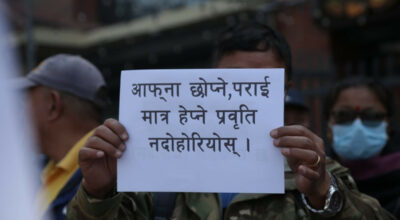 आफ्ना छोप्ने,पराई
मात्र हेप्ने प्रवृति
नदोहोरियोस् ।